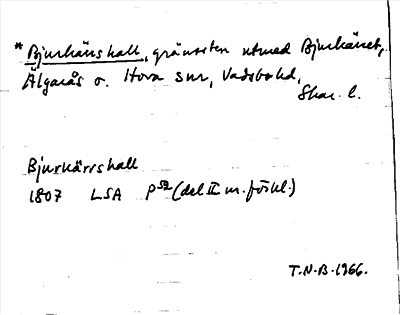 * Bjurkärrshall, gränssten utmed Bjurkärret,
Älgarås o. Hova snr, Vadsbo hd,
Skar. l.
Bjurkärrshall
1807 LSA P 52 (del II m. förkl.)
T.N-B-1966.